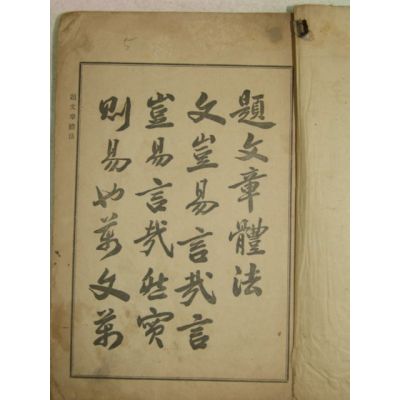 題文章體法
文豈易言哉言
豈易言哉然實
則易也萬文萬
題文章體法